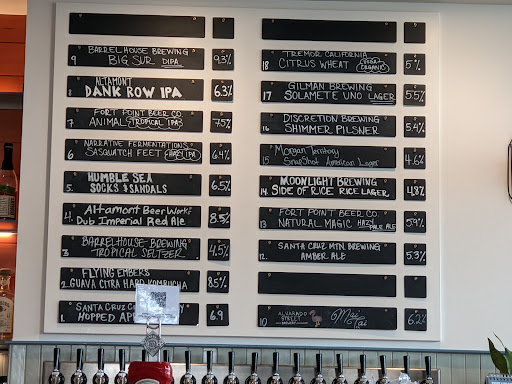 9 BARRELHOUSE BREWING
BIG SUR DIPA 9.3%
8. ALTAMONT
DANK ROW IPA 6.3%
7. FORT POINT BEER CO.
ANIMAL TROPICAL IPA 7.5%
6. NARRATIVE FERMENTATIONS
SASQUATCH FEET HAZY IPA 6.4%
5. HUMBLE SEA
SOCKS & SANDALS 6.5%
4. Altamont Beer Works
Dub Imperial Red Ale 8.5%
3. BARRELHOUSE BREWING
TROPICAL SELTZER 4.5%
2. FLYING EMBERS
GUAVA CITRA HARD KOMBUCHA 8.5%
1. SANTA CRUZ
HOPPED 6.9
18 TREMOR CALIFORNIA
CITRUS WHEAT ORGANIC 5%
17 GILMAN BREWING
SOLAMETE UNO LAGER 5.5%
16 DISCRETION BREWING
SHIMMER PILSNER 5.4%
15 Morgan Territory
SnapShot American Lager 4.6%
14 MOONLIGHT BREWING
SIDE OF RICE RICE LAGER 4.8%
13 FORT POINT BEER CO.
NATURAL MAGIC HAZY PALE ALE 5.9%
12. SANTA CRUZ MTN. BREWING
AMBER ALE 5.3%
10 ALVARADO STREET BREWERY Mai Tai 6.2%